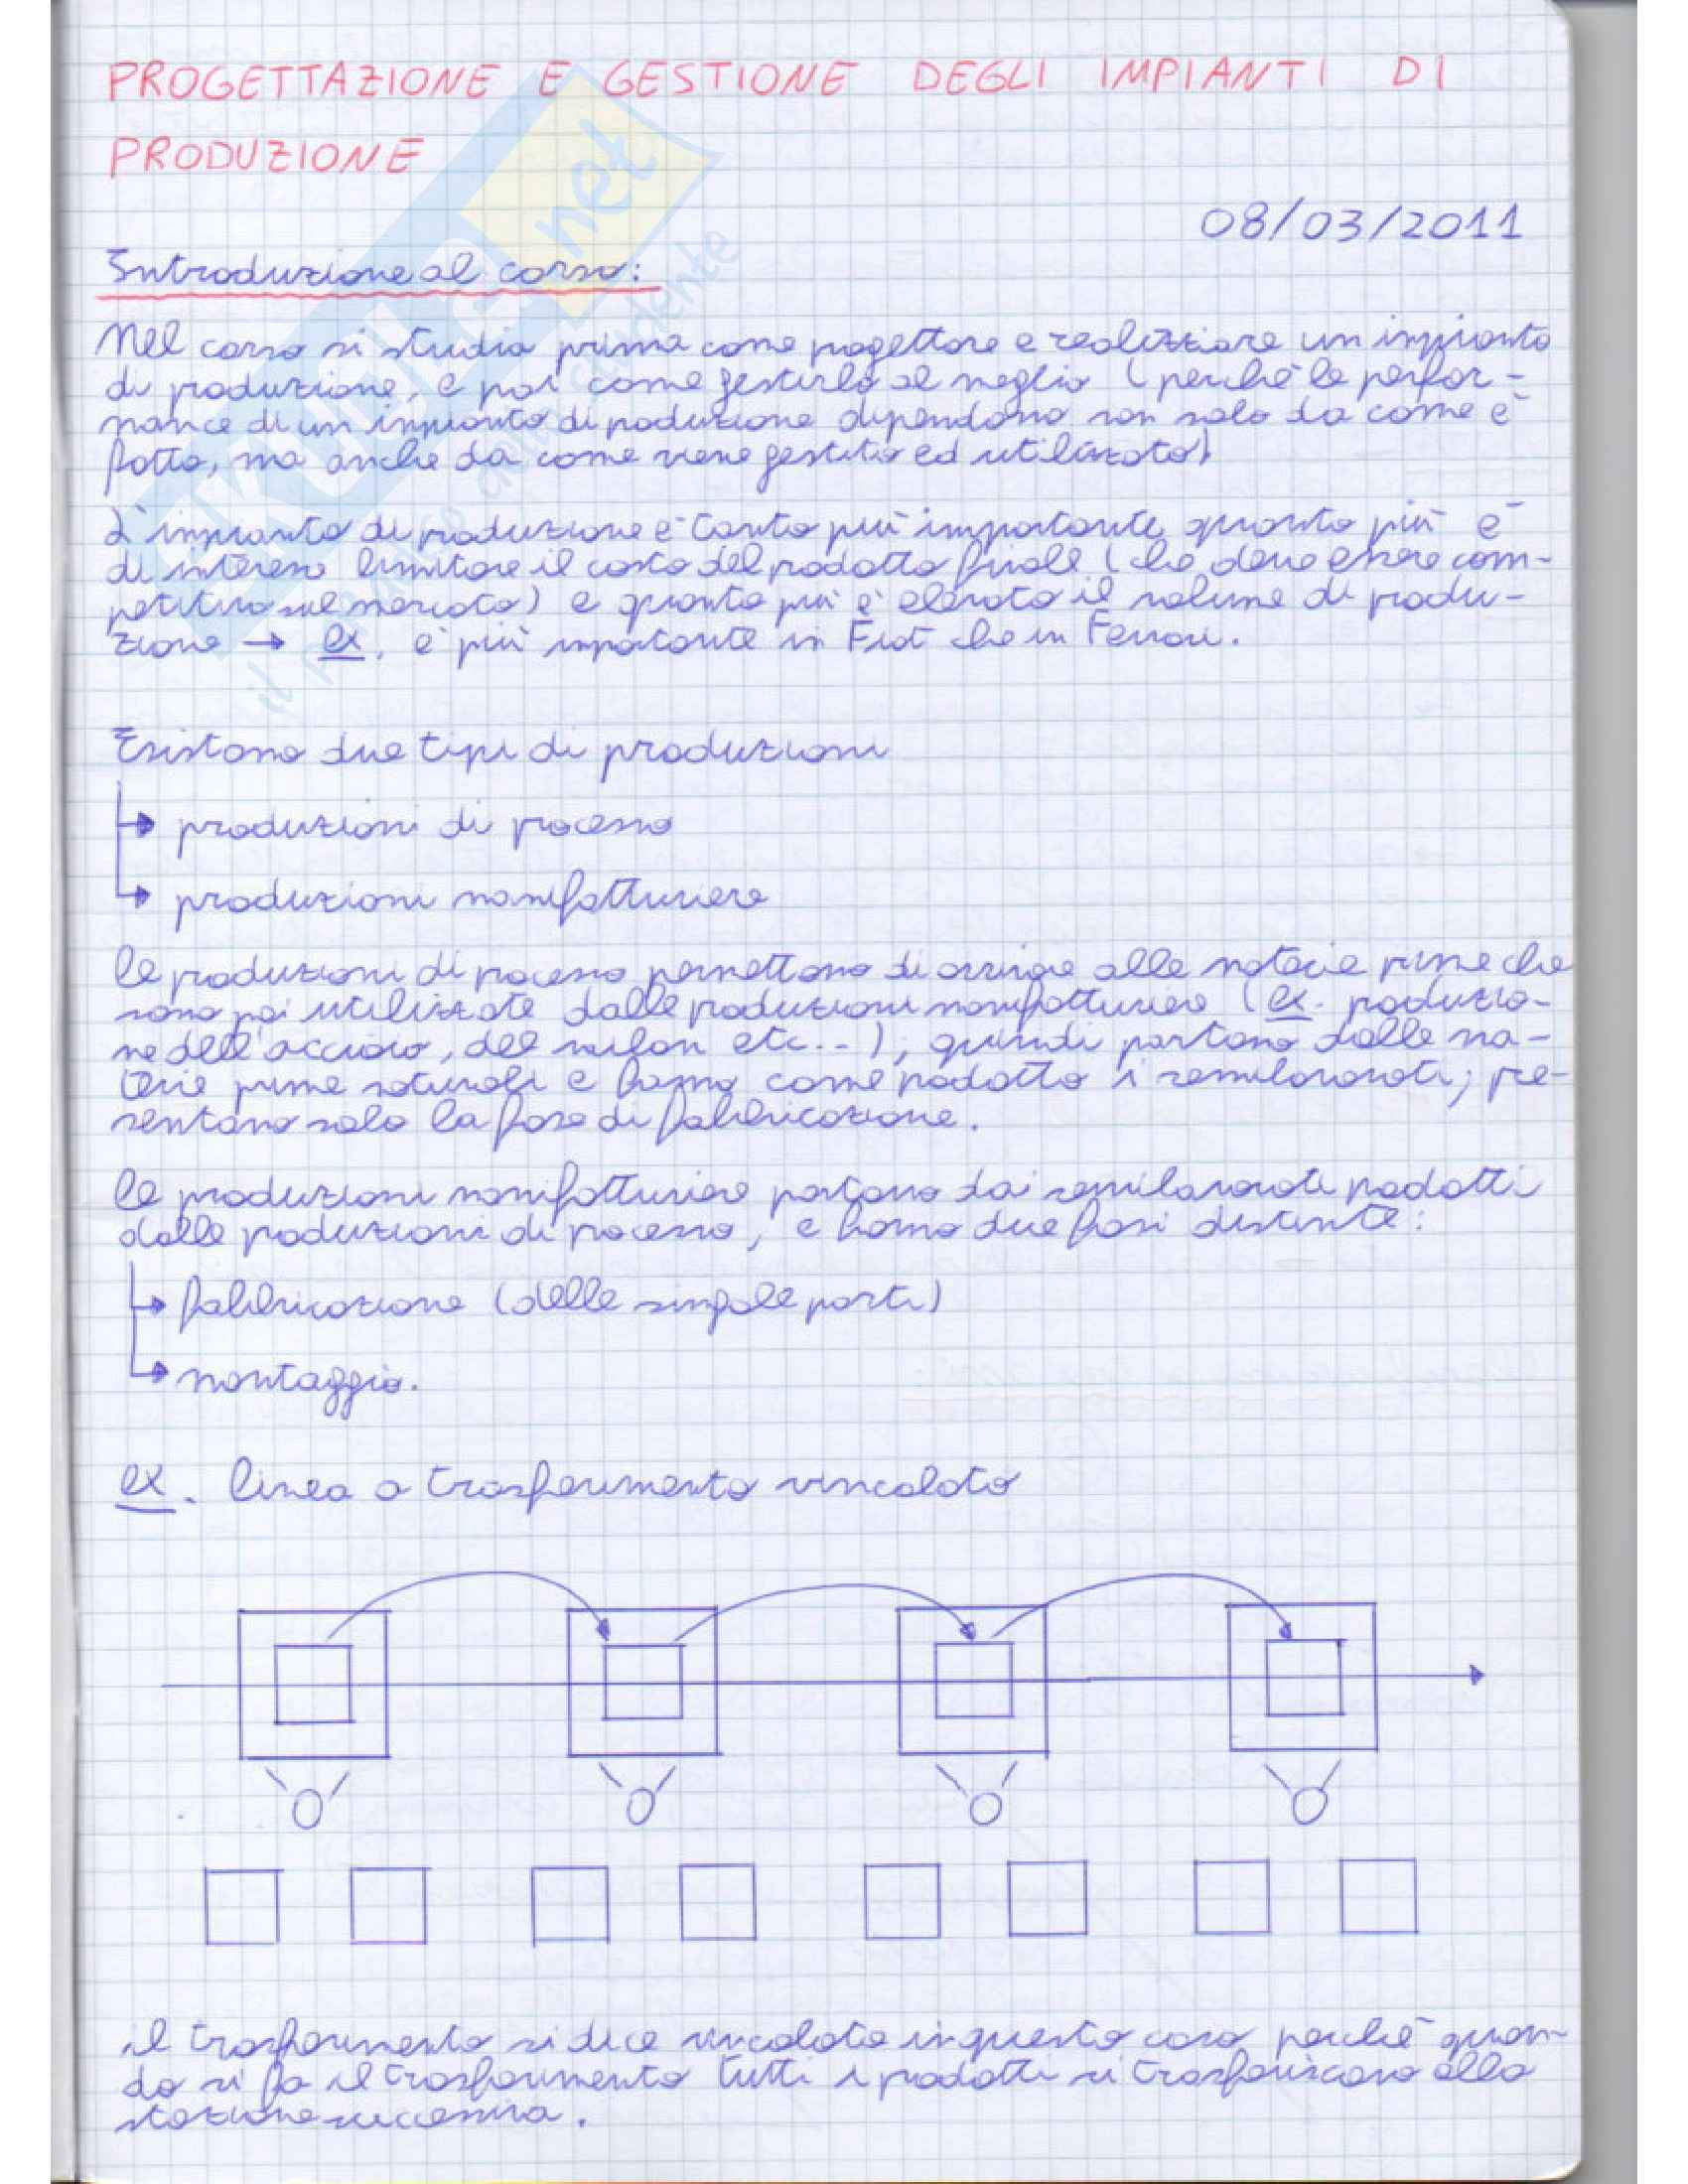 PROGETTAZIONE E GESTIONE DEGLI IMPIANTI DI
PRODUZIONE
08/03/2011
Introduzione al corso:
Nel corso si studia prima come progettare e realizzare un impianto
di produzione, e poi come gestirlo al meglio (perchè le perfor-
mance di un impianto di produzione dipendono non solo da come è
fatto, ma anche da come viene gestito ed utilizzato)
L'impianto di produzione è tanto più importante quanto più è
di interesse limitare il costo del prodotto finale (che deve essere com-
petitivo sul mercato) e quanto più è elevato il volume di produ-
zione → ex. è più importante in Fiat che in Ferrari.
Esistono due tipi di produzioni
produzioni di processo
produzioni manifatturiere
le produzioni di processo permettono di arrivare alle materie prime che
sono poi utilizzate dalle produzioni manifatturiere (ex. produzio-
ne dell'acciaio, del nailon etc...), quindi partono dalle ma-
terie prime naturali e hanno come prodotto i semilavorati; pre-
sentano solo la fase di fabbricazione.
le produzioni manifatturiere partono dai semilavorati prodotti
dalle produzioni di processo, e hanno due fasi distinte:
fabbricazione (delle singole parti)
montaggio.
ex. linea a trasferimento vincolato
il trasferimento si dice vincolato in questo caso perchè quan-
do si fa il trasferimento tutti i prodotti si trasferiscono alla
stazione successiva.
SKUOLA.net